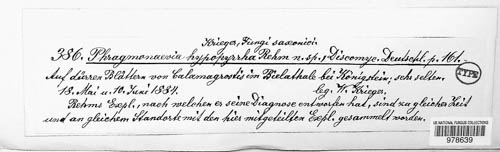 Krieger, Fungi saxonici.
386. Phragmonaevia hypopyrrha Rehm n. sp., Discomyc. Deutschl. p. 161.
Auf dürren Blättern von Calamagrostis im Bielathale bei Königstein, sehr selten.
18. Mai u. 10. Juni 1884. lg. W. Krieger.
TYPE
Rehms Expl., nach welchen er seine Diagnose entworfen hat, sind zu gleicher Zeit
und an gleichem Standorte mit den hier mitgeteilten Expl. gesammelt worden.
US NATIONAL FUNGUS COLLECTIONS
978639